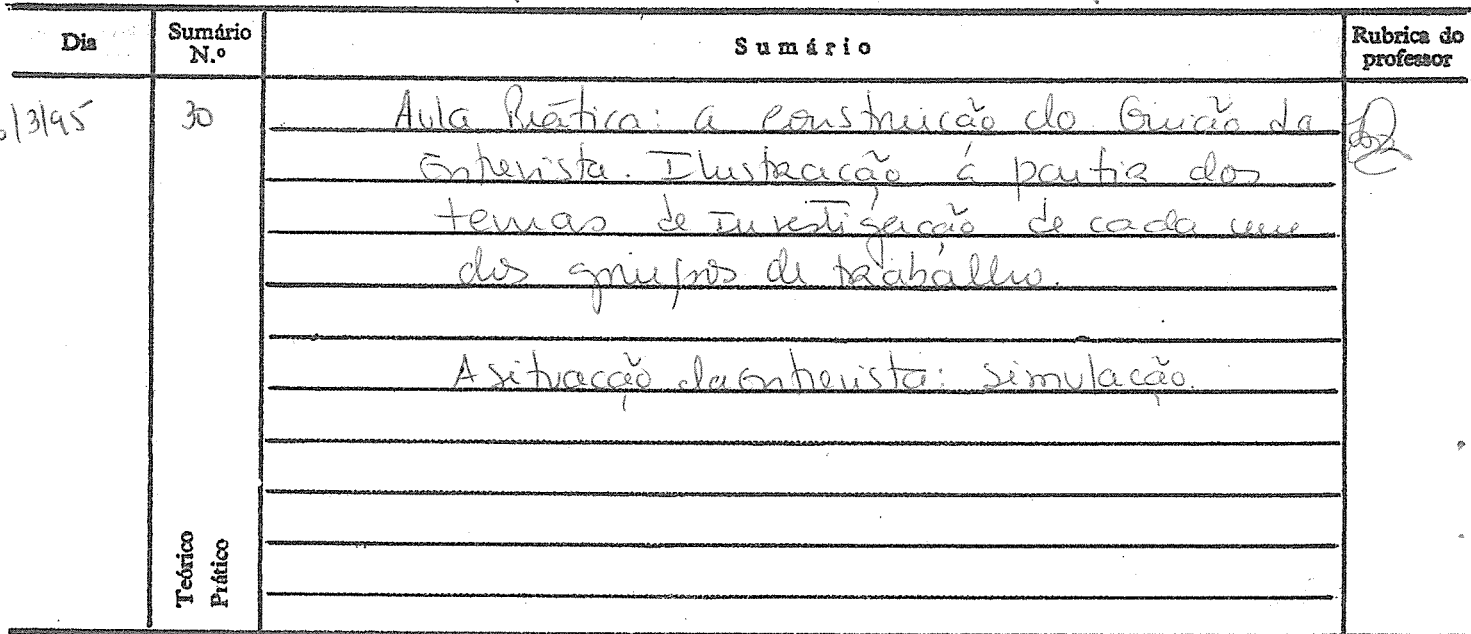 Dia
Sumário N.º
Sumário
Rubrica do professor
/3/95
30
Aula Prática: a construição do Guião da
Entrevista. Ilustracção á partir dos
temas de Investigação de cada um
dos grupos de trabalho.
A situacção da Entrevista: simulação.
Teórico
Prático